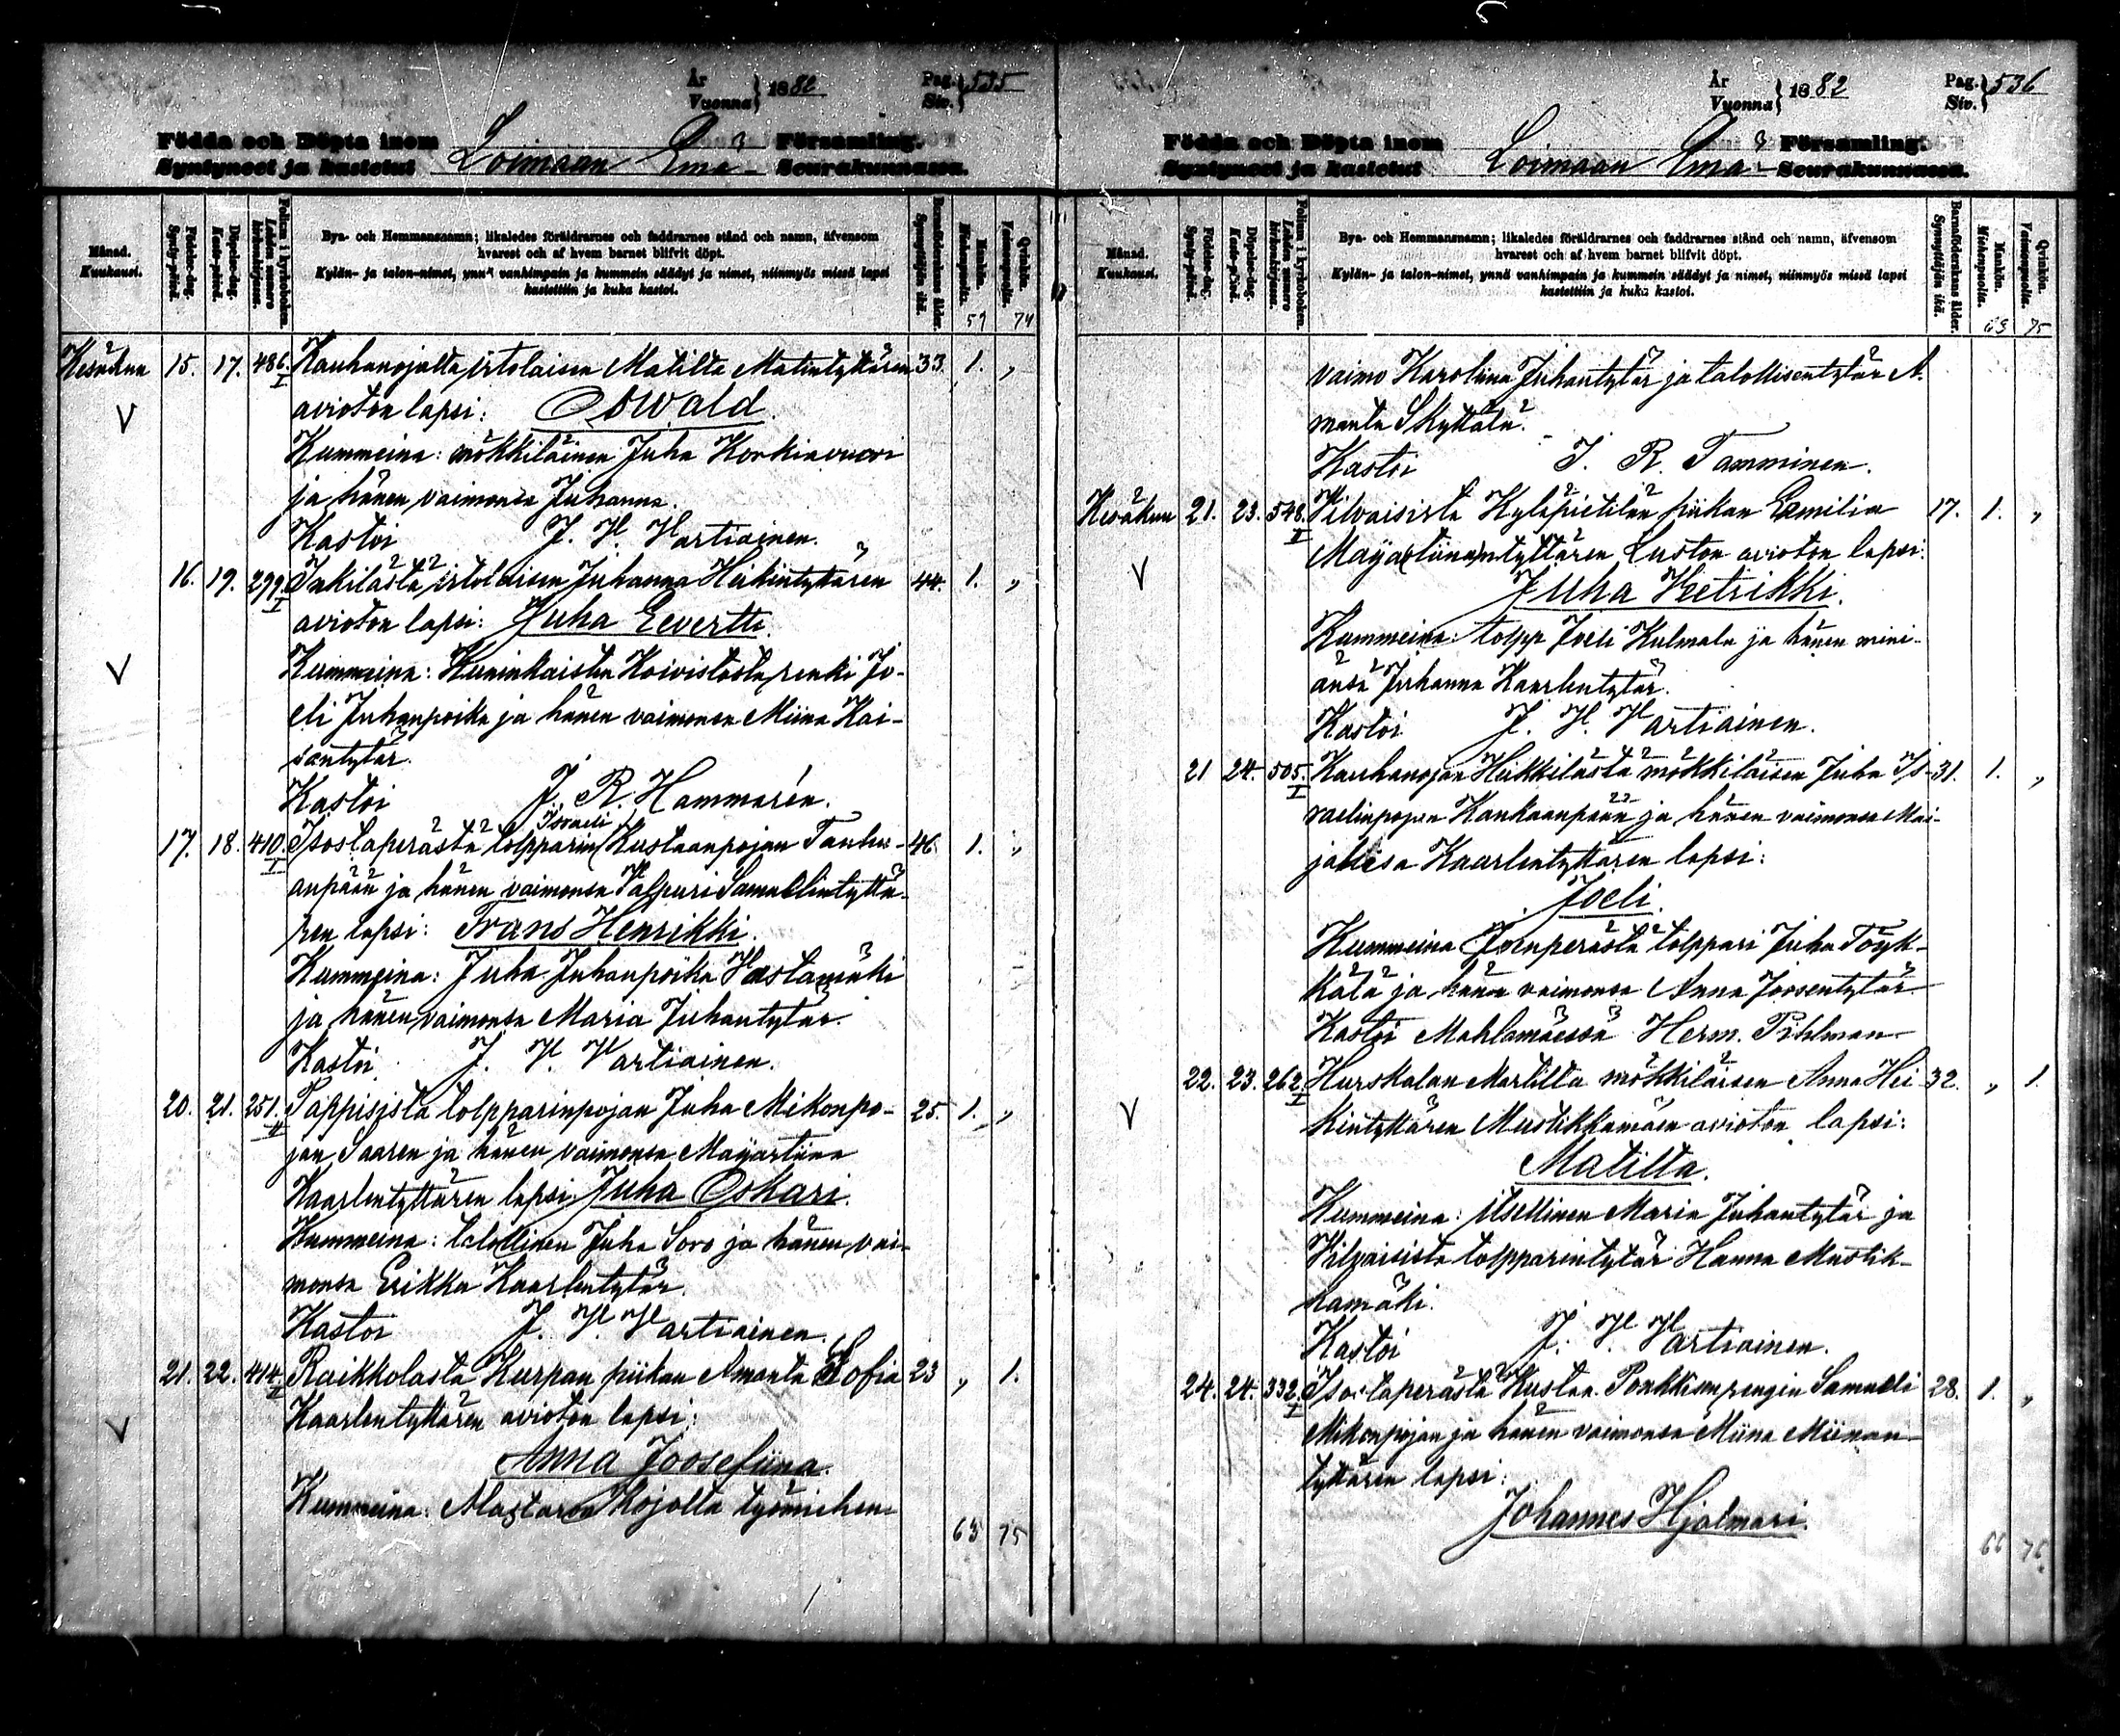 År
Vuonna } 1882 Pag. Siv. } 535
Födda och Döpta inom Församling.
Syntyneet ja kastetut Loimaan Emä- Seurakunnassa.
Månad. Kuukausi.
Födelse-dag. Synty-päivä.
Döpelse-dag. Kaste-päivä.
Folium i kyrkoboken. Lehden numero kirkonkirjassa.
Bya- och Hemmansnamn; likaledes föräldrarnes och faddrarnes stånd och namn, äfvensom
hvarest och af hvem barnet blifvit döpt.
Kylän- ja talon-nimet, ynnä vanhimpain ja kummein säädyt ja nimet, niinmyös missä lapsi
kastettiin ja kuka kastoi.
Barnföderskans ålder. Synnyttäjän ikä.
Mankön. Miehenpuolia. 59
Qvinkön. Vaimonpuolia. 74
Kesäkuu 15. 17. 486. I Kauhanojalta irtolaisen Matilta Matintyttären 33. 1. „
V avioton lapsi: Oswald.
Kummeina: mökkiläinen Juha Korkiavuori
ja hänen vaimonsa Juhanna.
Kastoi J. H. Hartiainen.
16. 19. 299. I irtolaisen Juhanna Heikintyttären 44. 1. „
avioton lapsi: Juha Eevertti.
V Kummeina: Kuninkaisten Koivistosta renki Jo-
eli Juhanpoika ja hänen vaimonsa Miina Kai-
santytär.
Kastoi J. R. Hammarén.
Israeli
17. 18. 410. I Isostaperästä tolpparin Kustaanpojan Tanhu- 46. 1. „
anpään ja hänen vaimonsa Valpuri Samuelintyttä-
ren lapsi: Frans Henrikki.
Kummeina: Juha Juhanpoika Hastamäki
ja hänen vaimonsa Maria Juhantytär.
Kastoi J. H. Hartiainen.
20. 21. 251. II Pappisista tolpparinpojan Juha Mikonpo- 25. 1. „
jan Saaren ja hänen vaimonsa Maijastiina
Kaarlentyttären lapsi Juha Oskari.
Kummeina: talollinen Juha Soro ja hänen vai-
monsa Erikka Kaarlentytär.
Kastoi J. H. Hartiainen.
21. 22. 414. I Raikkolasta Kurpan piikan Amanta Sofia 23 „ 1.
V Kaarlentyttären avioton lapsi:
Anna Joosefiina.
Kummeina: Alastaron Kojolta työmiehen
63 75
År
Vuonna } 1882 Pag. Siv. } 536
Födda och Döpta inom Församling.
Syntyneet ja kastetut Loimaan Emä- Seurakunnassa.
Månad. Kuukausi.
Födelse-dag. Synty-päivä.
Döpelse-dag. Kaste-päivä.
Folium i kyrkoboken. Lehden numero kirkonkirjassa.
Bya- och Hemmansnamn; likaledes föräldrarnes och faddrarnes stånd och namn, äfvensom
hvarest och af hvem barnet blifvit döpt.
Kylän- ja talon-nimet, ynnä vanhimpain ja kummein säädyt ja nimet, niinmyös missä lapsi
kastettiin ja kuka kastoi.
Barnföderskans ålder. Synnyttäjän ikä.
Mankön. Miehenpuolia. 63
Qvinkön. Vaimonpuolia. 75
vaimo Karoliina Juhantytär ja talollisentytär A.
manta Skyttälä.
Kastoi J. R. Tamminen.
Kesäkuu 21. 23. 548. II Vilvaisista Kyläpietilän piikan Eemilia 17. 1. „
V Maijastiinantyttären Luston avioton lapsi:
Juha Vietrikki.
Kummeina: tolpp Joeli Kulmala ja hänen mini-
änsä Juhanna Kaarlentytär.
Kastoi J. H. Hartiainen.
21 24. 505. I Kauhanojan Heikkilästä mökkiläisen Juha Is- 31. 1. „
raelinpojan Kankaanpään ja hänen vaimonsa Mai-
jaliisa Kaarlentyttären lapsi:
Joeli.
Kummeina Isonperästä tolppari Juha Töyk-
kälä ja hänen vaimonsa Anna Joosentytär
Kastoi Mahlamäessä Herm. Pihlman
22. 23. 262. I Hurskalan Marttilta mökkiläisen Anna Hei- 32. „ 1.
V kintyttären Mustikkamäen avioton lapsi:
Matilta.
Kummeina: itsellinen Maria Juhantytär ja
Vilvaisista tolpparintytär Hanna Mustik-
kamäki.
Kastoi J. H. Hartiainen.
24. 24. 332. I Isostaperästä Kustaa Ponkkisen rengin Samueli 28. 1. „
Mikonpojan ja hänen vaimonsa Miina Miinan-
tyttären lapsi:
Johannes Hjalmari.
66 76